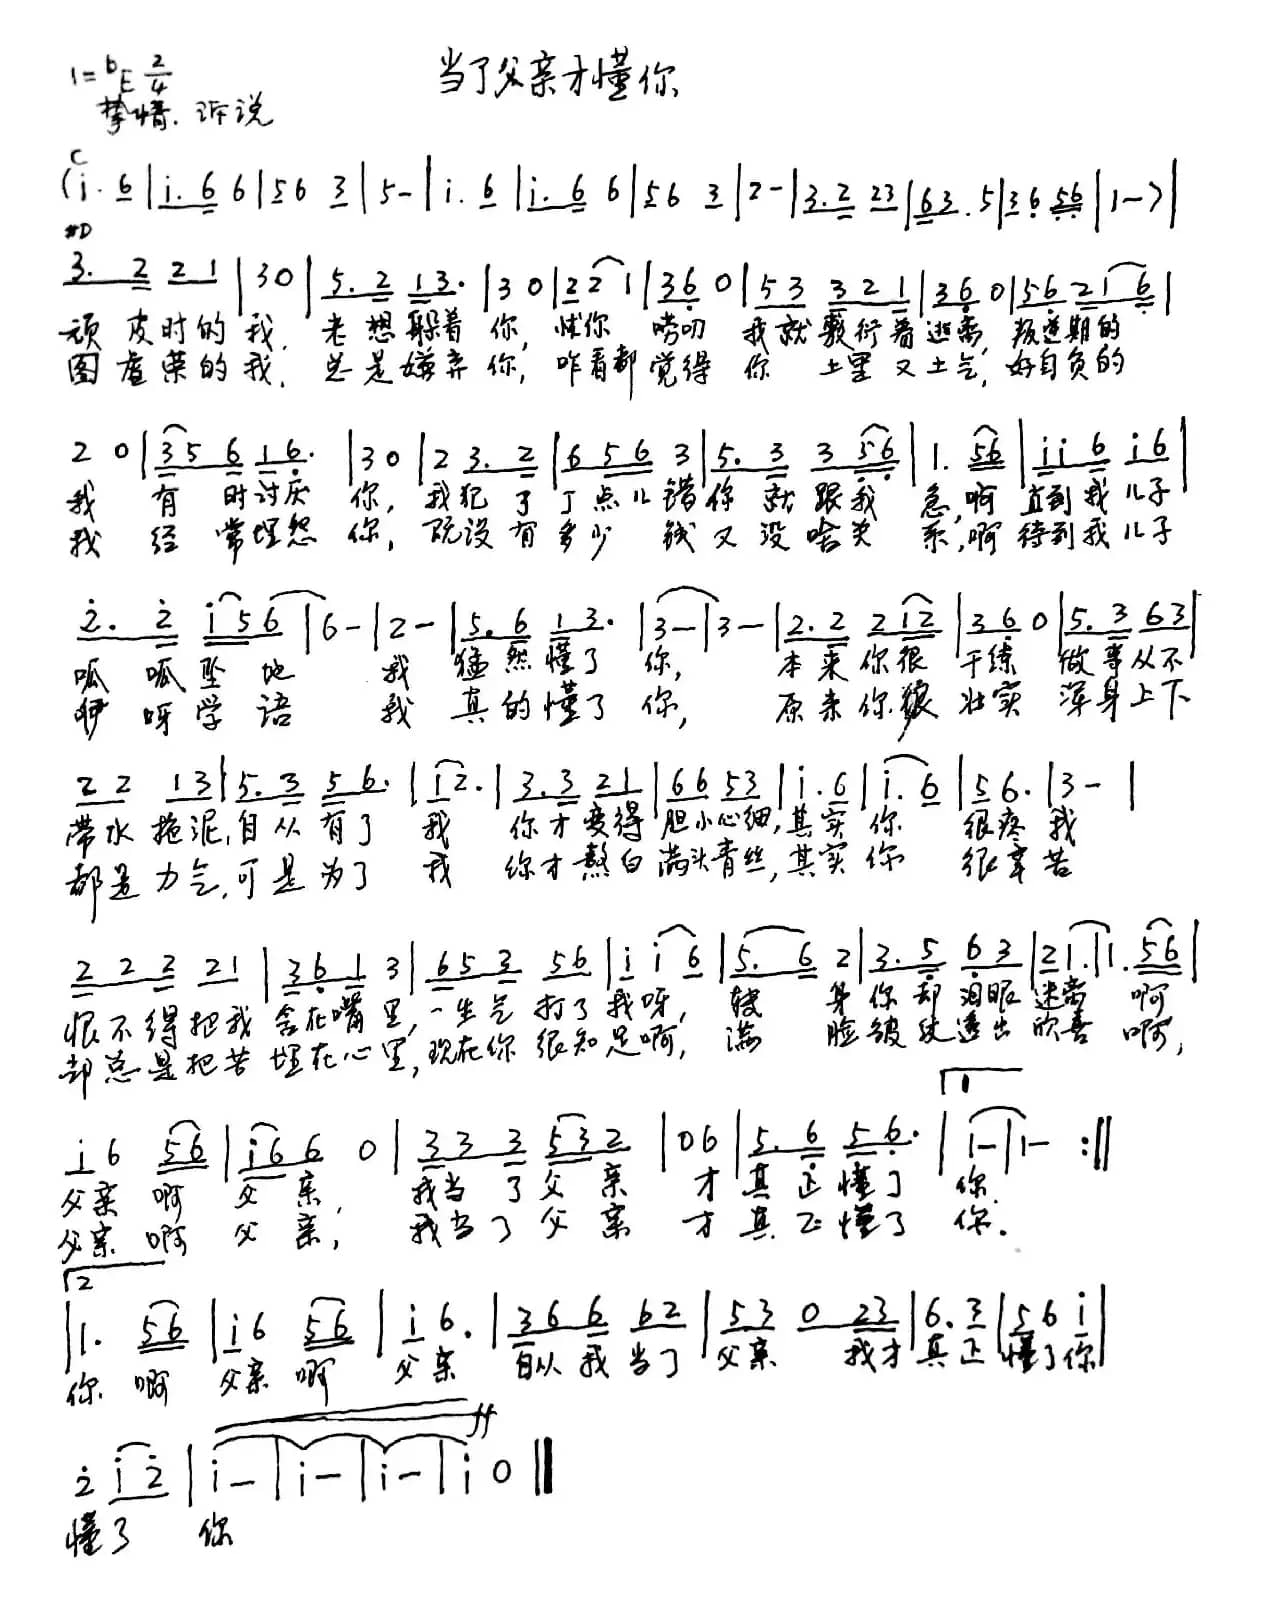 当了父亲才懂你
1=bE 2/4
挚情.诉说
C
(i. 6|i. 6 6|56 3|5-|i. 6|i. 6 6|56 3|2-|3.2 23|63. 5|36 56|1-)|
#D
3. 2 21|30|5.2 13.|30|22 1|36 0|53 321|360|56 216|
顽皮时的我, 老想躲着你, 怕你唠叨 我就敷衍着逃离, 叛逆期的
图虚荣的我, 总是嫌弃你, 咋看都觉得你 土里又土气, 好自负的
2 0|35 6 16.|30|2 3.2|656 3|5.3 356|1. 56|ii6 i6|
我 有时讨厌 你, 我犯了丁点儿错 你就跟我 急, 啊 直到我儿子
我 经常埋怨 你, 既没有多少钱 又没啥关 系, 啊 待到我儿子
2. 2 i56|6-|2-|5.6 13.|3-|3-|2.2 212|360|5.3 63|
呱呱坠地 我 猛然懂了 你, 本来你很 干练 做事从不
咿呀学语 我 真的懂了 你, 原来你很 壮实 浑身上下
22 13|5.3 56.|i2.|3.3 21|66 53|i. 6|i. 6|56.|3-|
带水拖泥, 自从有了 我 你才变得 胆小心细, 其实你 很疼我
都是力气, 可是为了 我 你才熬白 满头青丝, 其实你 很辛苦
222 21|361 3|653 56|i i6|5. 6 2|3.5 63|21.|1. 56|
恨不得把我 含在嘴里, 一生气打了我呀, 转身 你却泪眼迷离 啊
却总是把苦 埋在心里, 现在你很知足啊, 满脸 皱纹透出欣喜 啊,
1
i6 56|i66 0|333 532|06|5.6 56.|1-|1- :||
父亲 啊 父亲, 我当了父亲 才 真正懂了 你.
父亲 啊 父亲, 我当了父亲 才 真正懂了 你.
2
|1. 56|i6 56|i6.|366 62|53 0 23|6.3|56i|
你 啊 父亲 啊 父亲 自从我当了 父亲 我才真正懂了你
ff
2 i2|i-|i-|i-|i0||
懂了 你